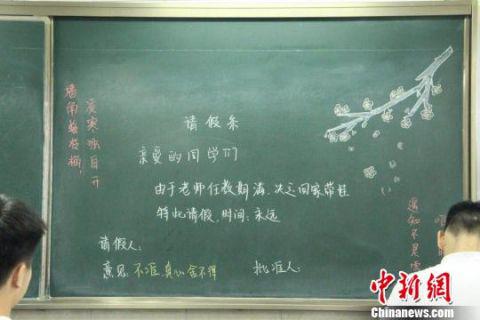 墙角数枝梅,
凌寒独自开
请假条
亲爱的同学们
由于老师任教期满,决定回家带娃
特此请假,时间:永远
请假人:
意见:不准,真心舍不得 批准人:
遥知不是
中新网
Chinanews.com